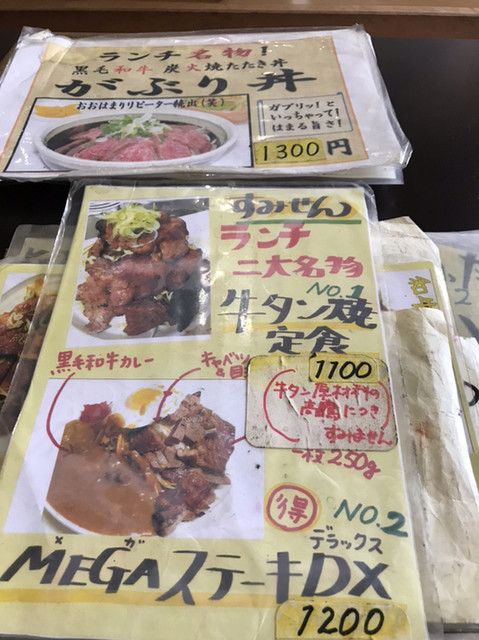 ランチ名物!
黒毛和牛 炭火焼たたき丼
がぶり丼
おおはまりリピーター続出(笑)
ガブリッ!と
いっちゃって!
はまる旨さ!
1300円
すみません
ランチ
二大名物
No.1
牛タン焼
定食
1100
牛タン原材料の
高騰につき
すみません
一枚250g
黒毛和牛カレー
キャベツ
得
NO.2
デラックス
メガ
MEGAステーキDX
1200